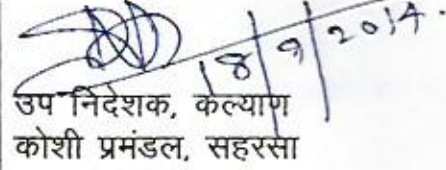 18/9/2014.
उप निदेशक, कल्याण
कोशी प्रमंडल, सहरसा